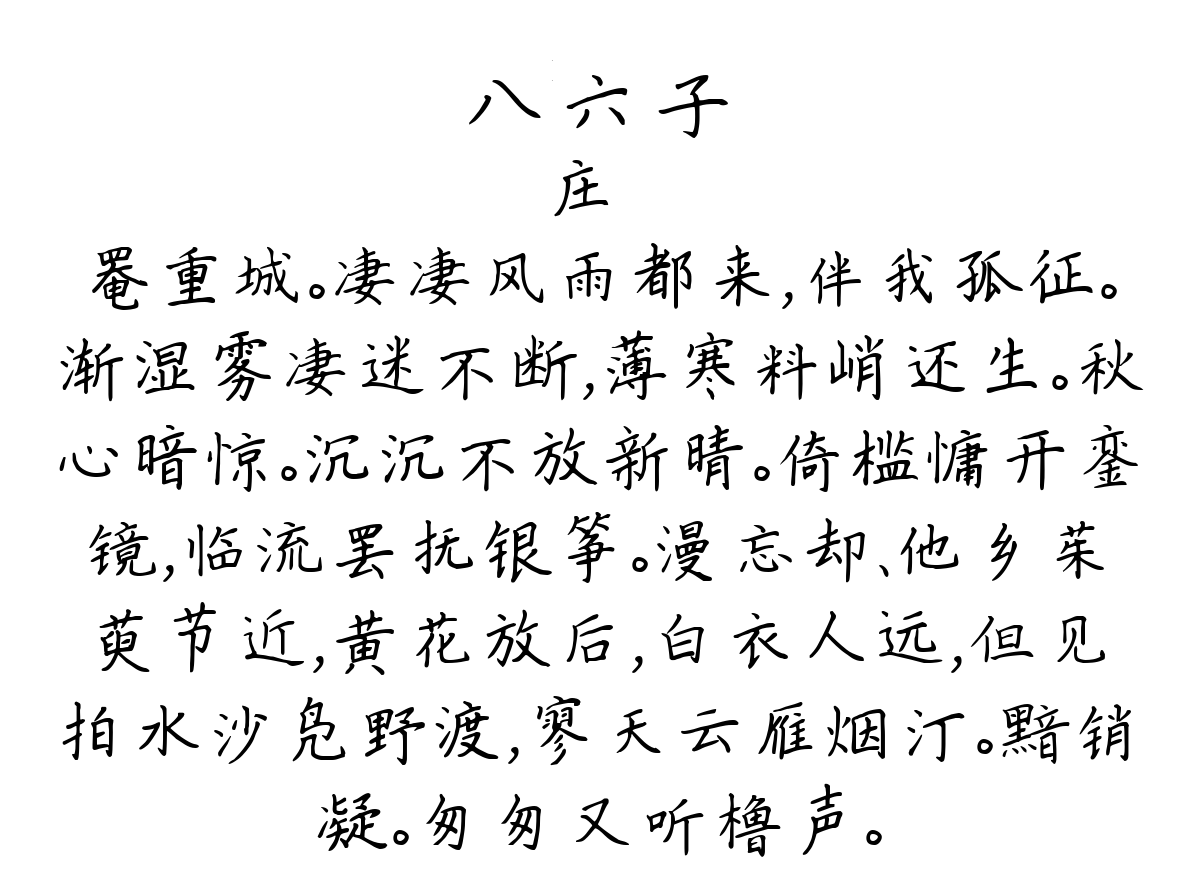 八六子
庄
罨重城。凄凄风雨都来,伴我孤征。
渐湿雾凄迷不断,薄寒料峭还生。秋
心暗惊。沉沉不放新晴。倚槛慵开銮
镜,临流罢抚银筝。漫忘却、他乡茱
萸节近,黄花放后,白衣人远,但见
拍水沙凫野渡,寥天云雁烟汀。黯销
凝。匆匆又听橹声。